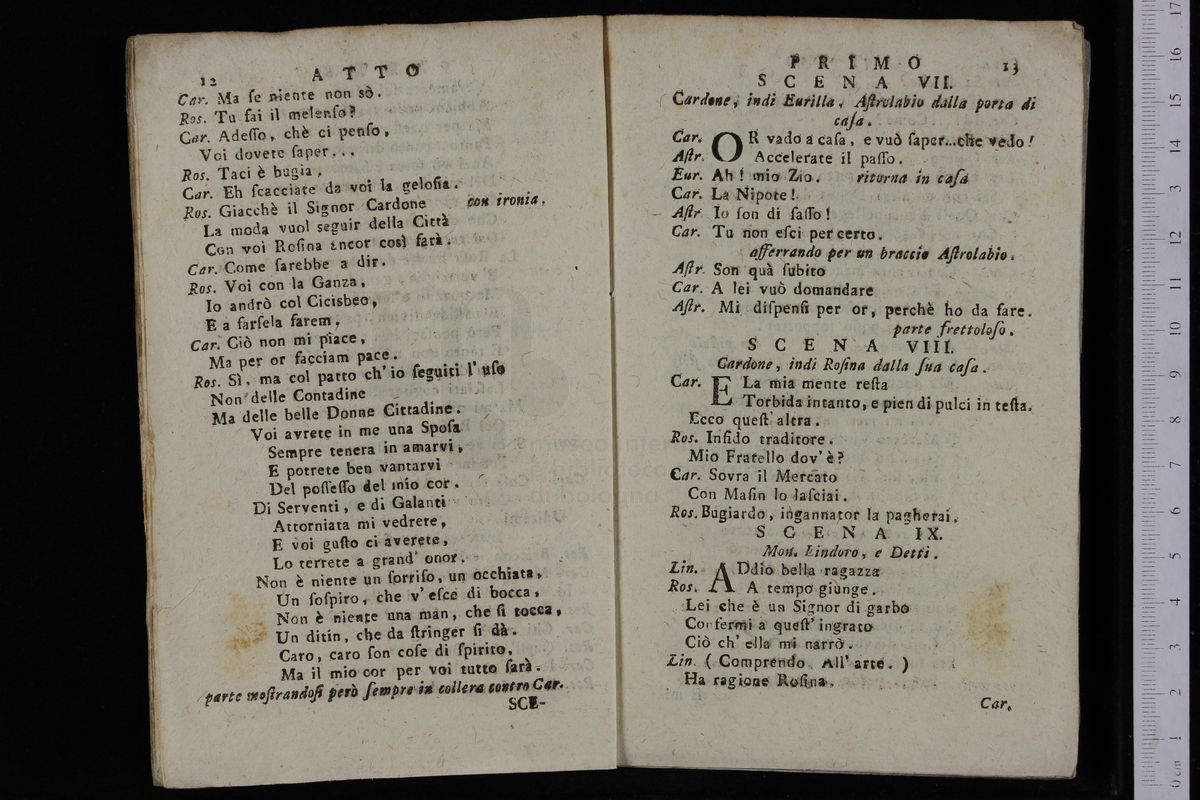 12 ATTO
Car. Ma ſe niente non sò.
Ros. Tu fai il melenſo?
Car. Adeſſo, chè ci penſo,
Voi dovete ſaper...
Ros. Taci è bugia,
Car. Eh ſcacciate da voi la geloſia.
Ros. Giacchè il Signor Cardone con ironia.
La moda vuol ſeguir della Città
Con voi Roſina ancor così farà.
Car. Come ſarebbe a dir.
Ros. Voi con la Ganza,
Io andrò col Cicisbeo,
E a farſela farem.
Car. Ciò non mi piace,
Ma per or facciam pace.
Ros. Sì, ma col patto ch'io ſeguiti l'uſo
Non delle Contadine
Ma delle belle Donne Cittadine.
Voi avrete in me una Spoſa
Sempre tenera in amarvi,
E potrete ben vantarvi
Del poſſeſſo del mio cor.
Di Serventi, e di Galanti
Attorniata mi vedrete,
E voi guſto ci averete,
Lo terrete a grand' onor.
Non è niente un ſorriſo, un occhiata,
Un ſoſpiro, che v'eſce di bocca,
Non è niente una man, che ſi tocca,
Un ditin, che da ſtringer ſi dà.
Caro, caro ſon coſe di ſpirito,
Ma il mio cor per voi tutto ſarà.
parte moſtrandoſi però ſempre in collera contro Car.
SCE-
PRIMO 13
SCENA VII.
Cardone, indi Eurilla, Aſtrolabio dalla porta di
caſa.
Car. OR vado a caſa, e vuò ſaper...che vedo!
Aſtr. Accelerate il paſſo.
Eur. Ah! mio Zio. ritorna in caſa
Car. La Nipote!
Aſtr. Io ſon di ſaſſo!
Car. Tu non eſci per certo.
afferrando per un braccio Aſtrolabio.
Aſtr. Son quà ſubito
Car. A lei vuò domandare
Aſtr. Mi diſpenſi per or, perchè ho da fare.
parte frettoloſo.
SCENA VIII.
Cardone, indi Roſina dalla ſua caſa.
Car. E La mia mente reſta
Torbida intanto, e pien di pulci in teſta.
Ecco queſt' altra.
Ros. Infido traditore.
Mio Fratello dov'è?
Car. Sovra il Mercato
Con Maſin lo laſciai.
Ros. Bugiardo, ingannator la pagherai.
SCENA IX.
Mon. Lindoro, e Detti.
Lin. ADdio bella ragazza
Ros. A tempo giunge.
Lei che è un Signor di garbo
Confermi a queſt' ingrato
Ciò ch' ella mi narrò.
Lin. (Comprendo All' arte.)
Ha ragione Roſina.
Car.